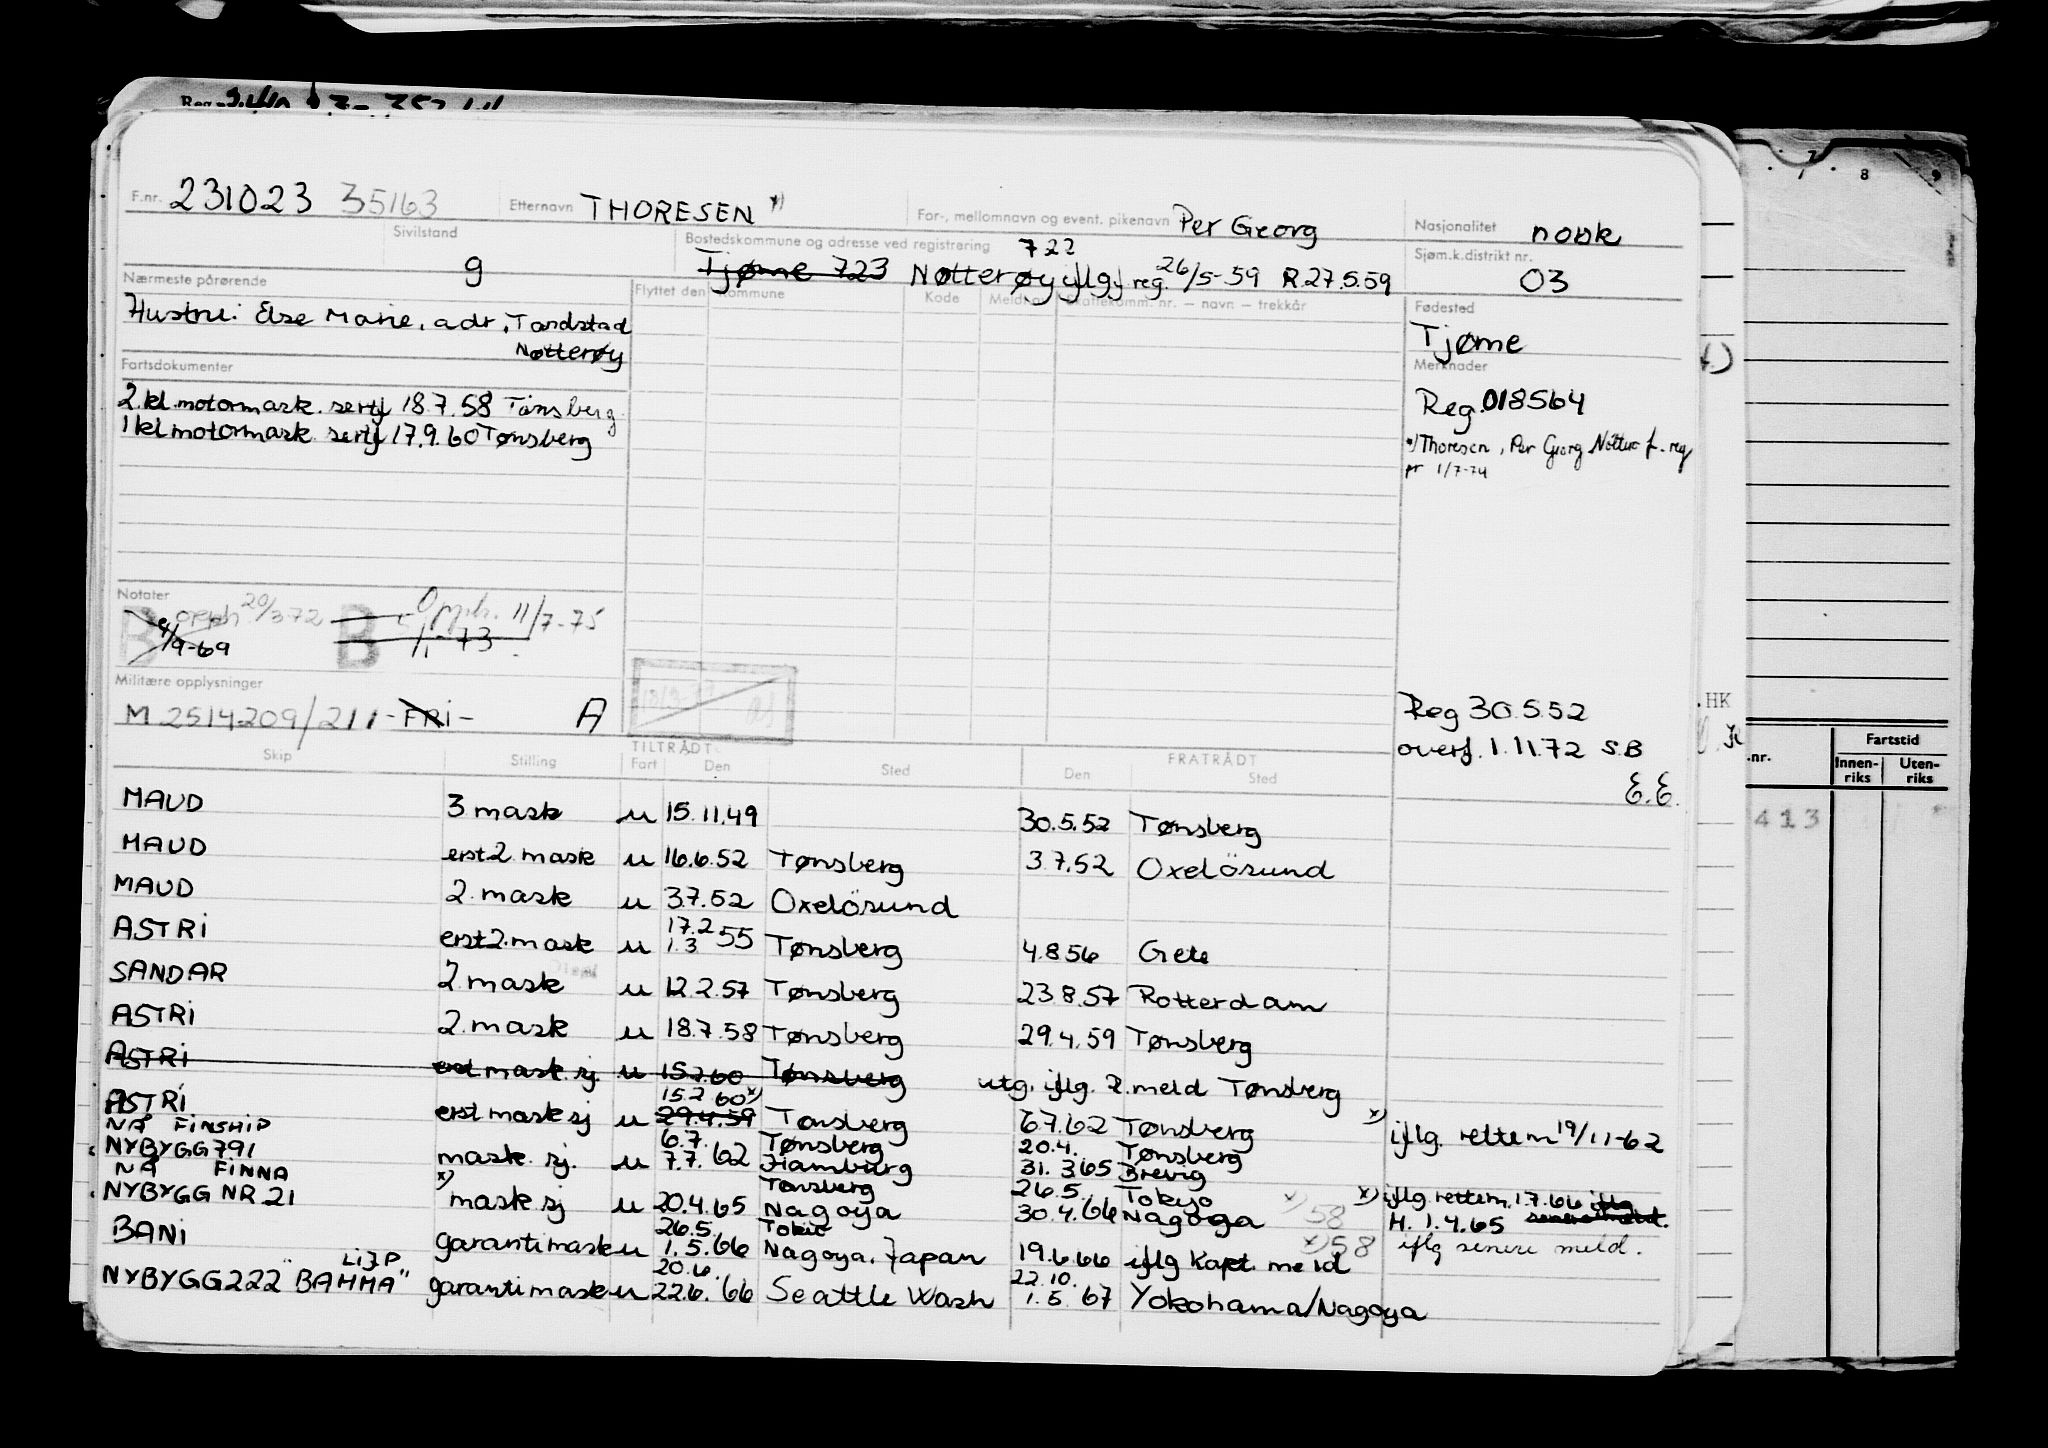 F.nr. 231023 35163 Etternavn THORESEN x) For-, mellomnavn og event. pikenavn Per Georg Nasjonalitet norsk
Sivilstand g Bostedskommune og adresse ved registrering 722 Sjøm.k.distrikt nr. 03
Tjøme 723 Nøtterøy iflg reg. 26/5-59 R.27.5.59
Nærmeste pårørende Flyttet den Kommune Kode Meldt Skattekomm. nr. — navn — trekkår Fødested
Hustru: Else Marie, adr, Tandstad Tjøme
Nøtterøy
Fartsdokumenter Merknader
2.kl.motormask.sertf 18.7.58 Tønsberg Reg. 018564
1 kl motormask sertf 17.9.60 Tønsberg x) Thoresen, Per Georg f. reg
pr 1/7-74
Notater
B opph 20/3 72 B Opph. 11/7-75
/9-69 1/1-73
Militære opplysninger
M 2514209/211-FRI- A Reg 30.5.52
overf. 1.11.72 S.B
E.E.
Skip Stilling TILTRÅDT Fart Den Sted FRATRÅDT Den Sted
MAUD 3 mask u 15.11.49 30.5.52 Tønsberg
MAUD erst 2. mask u 16.6.52 Tønsberg 3.7.52 Oxelösund
MAUD 2. mask u 3.7.52 Oxelösund
17.2
ASTRI erst 2. mask u 1.3 55 Tønsberg 4.8.56 Gete
SANDAR 2. mask u 12.2.57 Tønsberg 23.8.57 Rotterdam
ASTRI 2. mask u 18.7.58 Tønsberg 29.4.59 Tønsberg
ASTRI erst mask. sj. u 15.2.60 Tønsberg utg. iflg. R. meld Tønsberg
15.2 60 x)
ASTRI erst mask sj u 29.4.59 Tønsberg 6.7.62 Tønsberg x) iflg. rettem 19/11-62
NÅ FINSHIP 6.7. Tønsberg 20.4. Tønsberg
NYBYGG 791 mask. sj. u 7.7.62 Hamburg 31.3.65 Brevig
NÅ FINNA x) Tønsberg 26.5. Tokyo x) iflg. rettem. 1.7.66 iflg
NYBYGG NR 21 mask sj u 20.4.65 Nagoya 30.4.66 Nagoya x) 58 H. 1.4.65
26.5. Tokio
BANI garantimask u 1.5.66 Nagoya, Japan 19.6.66 iflg Kapt. meld x) 58 iflg senere meld.
20.6. 22.10.
NYBYGG 222 "BAMMA" garantimask u 22.6.66 Seattle Wash 1.5.67 Yokohama/Nagoya
HK
.nr. Fartstid
Innen-riks Uten-riks
413
7 8 9